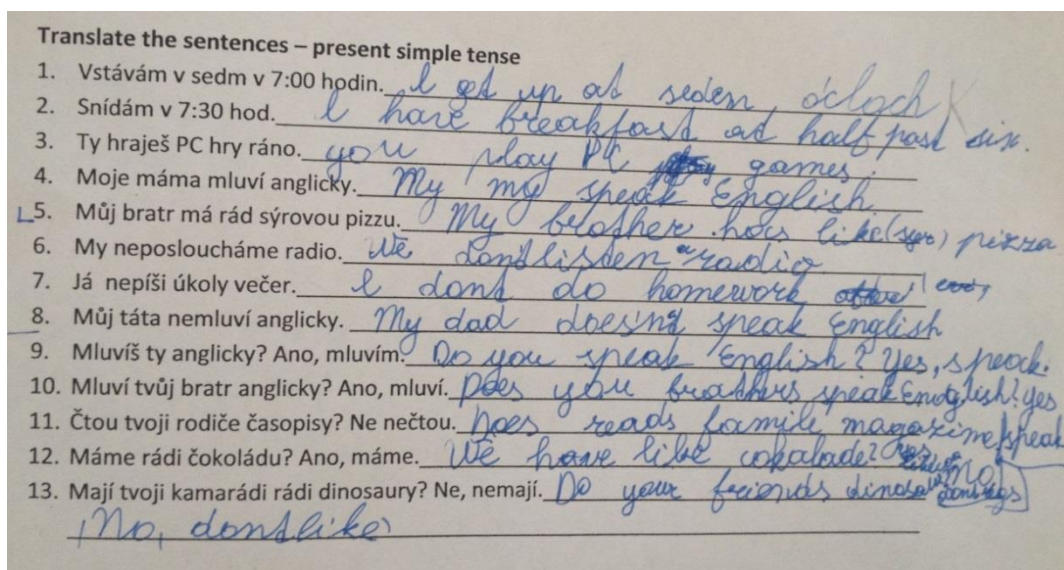 Translate the sentences – present simple tense
1. Vstávám v sedm v 7:00 hodin. I get up at seden, óclock
2. Snídám v 7:30 hod. I have breakfast at half past six.
3. Ty hraješ PC hry ráno. you play PC games.
4. Moje máma mluví anglicky. My my speak English.
5. Můj bratr má rád sýrovou pizzu. My brother has like pizza
6. My neposloucháme radio. We dont listen a radio
7. Já nepíši úkoly večer. I dont do homework
8. Můj táta nemluví anglicky. My dad doesnt speak English
9. Mluvíš ty anglicky? Ano, mluvím. Do you speak English? Yes, speak.
10. Mluví tvůj bratr anglicky? Ano, mluví. Does you brothers speak English? yes
11. Čtou tvoji rodiče časopisy? Ne nečtou. Does reads famile magazime speak
12. Máme rádi čokoládu? Ano, máme. We have like cokalade? No,
13. Mají tvoji kamarádi rádi dinosaury? Ne, nemají. Do your friends
No, dont like